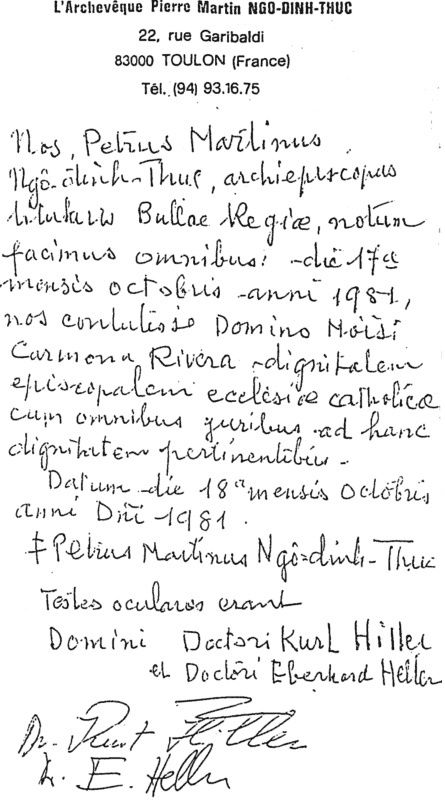 L'Archevêque Pierre Martin NGO-DINH-THUC
22, rue Garibaldi
83000 TOULON (France)
Tél. (94) 93.16.75
Nos, Petrus Martinus
Ngô-dinh-Thuc, archiepiscopus
titularis Bullae Regiæ, notum
facimus omnibus: die 17a
mensis octobris anni 1981,
nos contulisse Domino Moisi
Carmona Rivera dignitatem
episcopalem ecclesiæ catholicæ
cum omnibus juribus ad hanc
dignitatem pertinentibus -
Datum die 18a mensis octobris
anni Dñi 1981.
‡ Petrus Martinus Ngô-dinh-Thuc
Testes oculares erant
Domini Doctori Kurt Hiller
et Doctori Eberhard Heller
Dr. Kurt Hiller
Dr. E. Heller